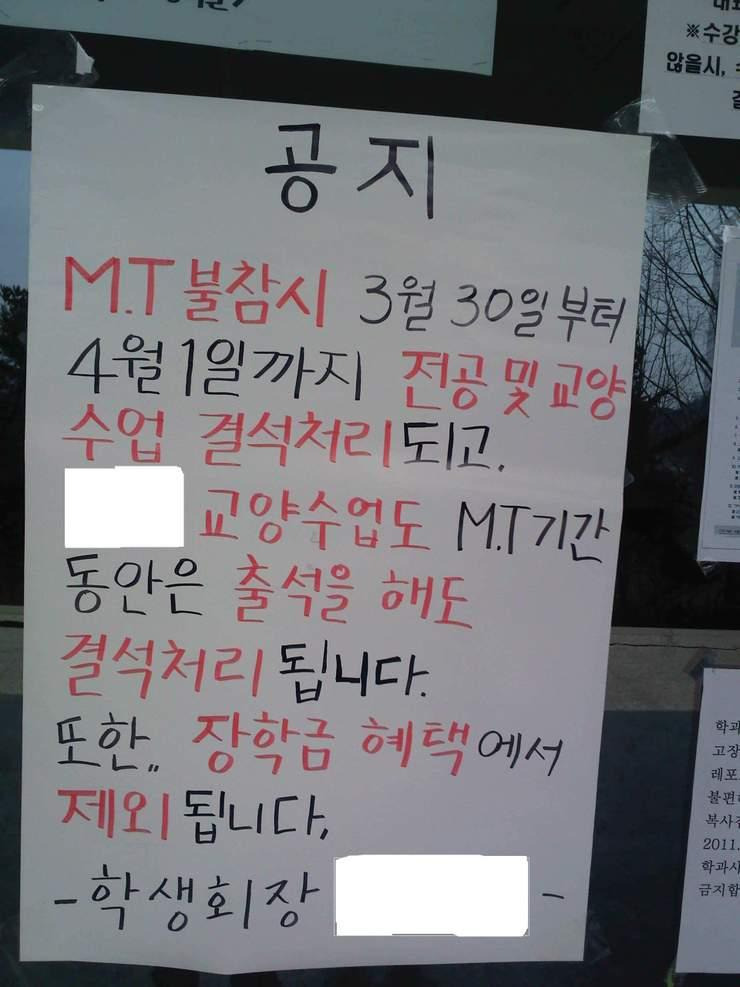 공지
M.T 불참시 3월 30일부터
4월 1일까지 전공 및 교양
수업 결석처리되고.
교양수업도 M.T기간
동안은 출석을 해도
결석처리 됩니다.
또한,, 장학금 혜택에서
제외됩니다,
-학생회장 -
※수강
않을시,
학과
고장
레포
불편
복사
2011.
학과사
금지합